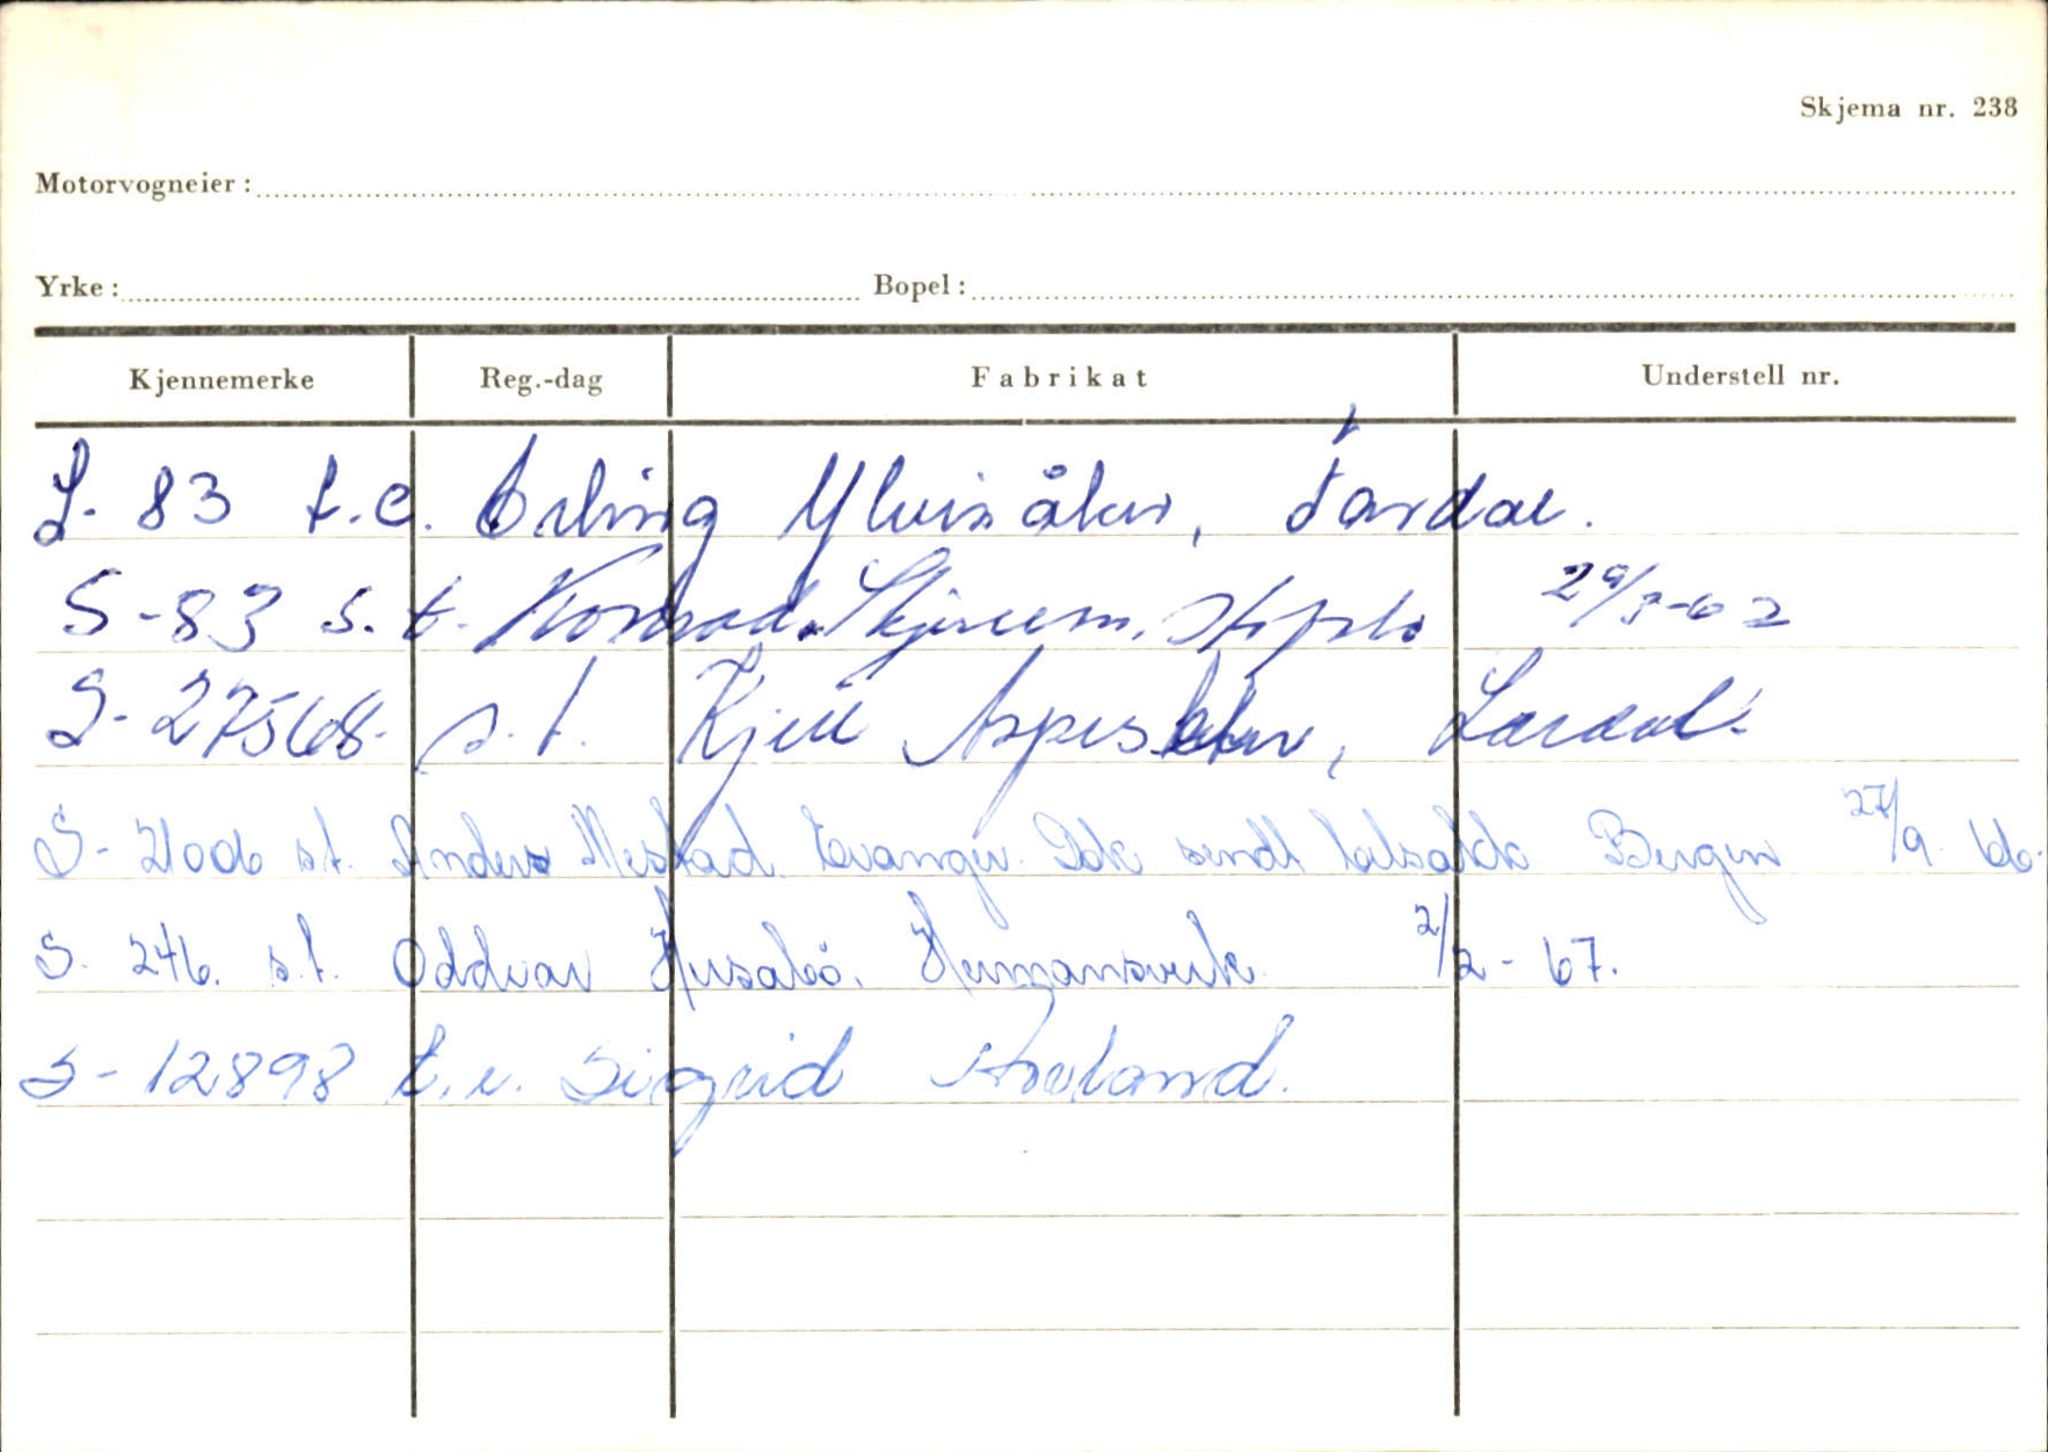 Skjema nr. 238
Motorvogneier:
Yrke: Bopel:
Kjennemerke Reg.-dag Fabrikat Understell nr.
S- 83 t.e. Erling Ylvisåker, Jardal.
S-83 s.t. Konrad Skjerum, 29/3-62
S-27568 s.t. Kjell Aspesletten, Lærdal
S- 21006 s.t. Anders Mestad. Evanger. Dok sendt bilsakk Bergen 27/9. 66.
S. 246. s.t. Oddvar Husabö. Hermansverk 2/2-67.
S-12898 t.e. Sigrid